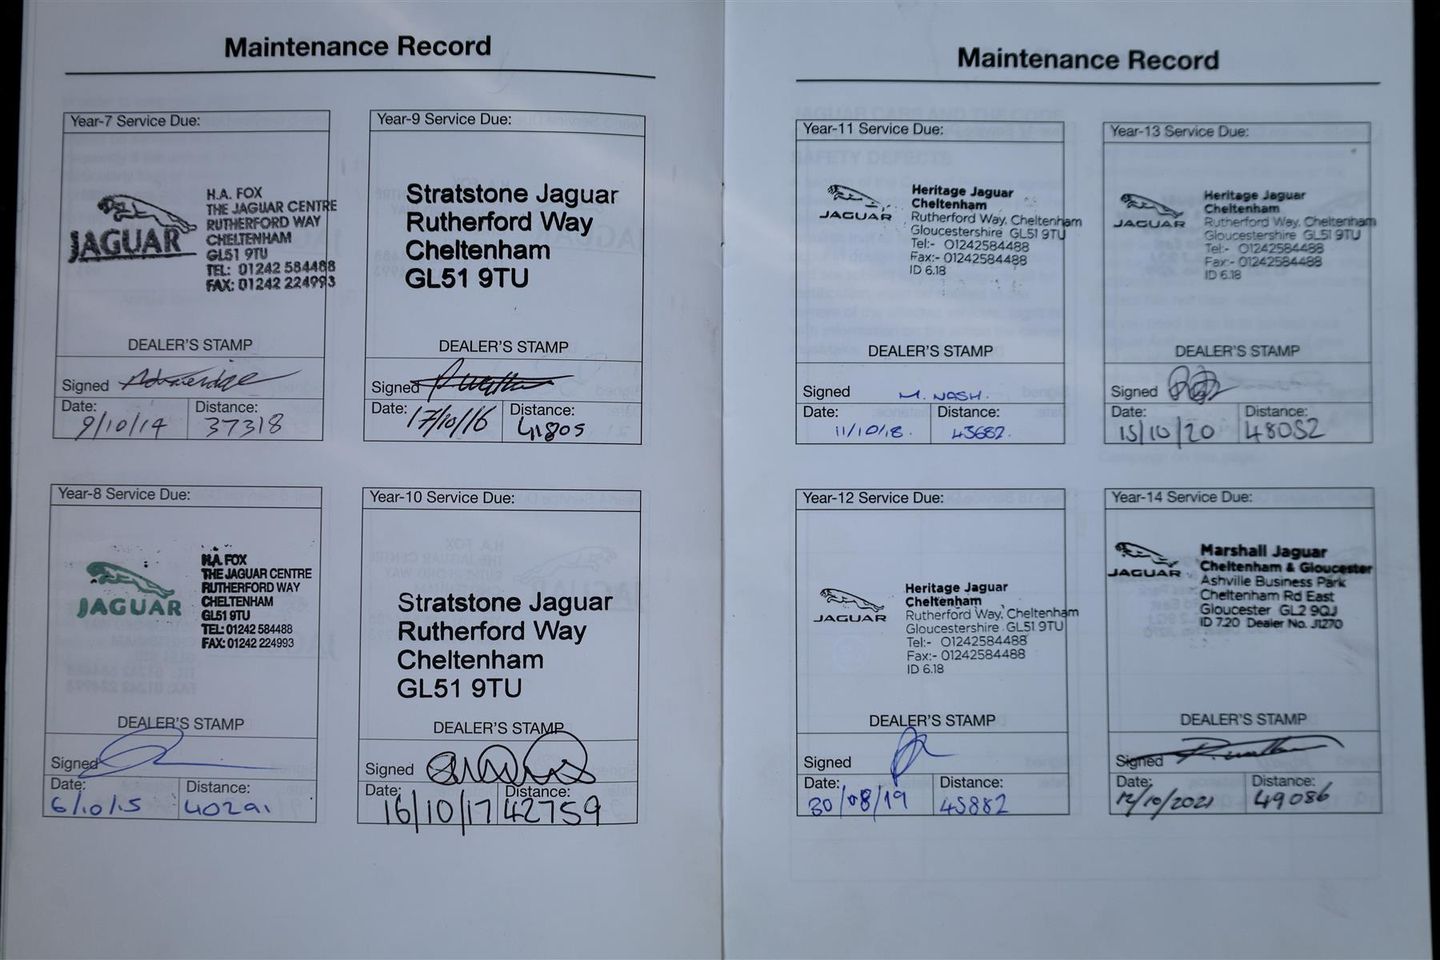 Maintenance Record
Year-7 Service Due:
JAGUAR
H.A. FOX
THE JAGUAR CENTRE
RUTHERFORD WAY
CHELTENHAM
GL51 9TU
TEL: 01242 584488
FAX: 01242 224993
DEALER'S STAMP
Signed
Date: Distance:
9/10/14 37318
Year-9 Service Due:
Stratstone Jaguar
Rutherford Way
Cheltenham
GL51 9TU
DEALER'S STAMP
Signed
Date: Distance:
17/10/16 41805
Year-8 Service Due:
JAGUAR
H.A. FOX
THE JAGUAR CENTRE
RUTHERFORD WAY
CHELTENHAM
GL51 9TU
TEL: 01242 584488
FAX: 01242 224993
DEALER'S STAMP
Signed
Date: Distance:
6/10/15 40291
Year-10 Service Due:
Stratstone Jaguar
Rutherford Way
Cheltenham
GL51 9TU
DEALER'S STAMP
Signed
Date: Distance:
16/10/17 42759
Maintenance Record
Year-11 Service Due:
JAGUAR
Heritage Jaguar
Cheltenham
Rutherford Way, Cheltenham
Gloucestershire GL51 9TU
Tel:- 01242584488
Fax:- 01242584488
ID 6.18
DEALER'S STAMP
Signed M. NASH.
Date: Distance:
11/10/18. 43682.
Year-13 Service Due:
JAGUAR
Heritage Jaguar
Cheltenham
Rutherford Way, Cheltenham
Gloucestershire GL51 9TU
Tel:- 01242584488
Fax:- 01242584488
ID 6.18
DEALER'S STAMP
Signed
Date: Distance:
15/10/20 48052
Year-12 Service Due:
JAGUAR
Heritage Jaguar
Cheltenham
Rutherford Way, Cheltenham
Gloucestershire GL51 9TU
Tel:- 01242584488
Fax:- 01242584488
ID 6.18
DEALER'S STAMP
Signed
Date: Distance:
30/08/19 45882
Year-14 Service Due:
JAGUAR
Marshall Jaguar
Cheltenham & Gloucester
Ashville Business Park
Cheltenham Rd East
Gloucester GL2 9QJ
ID 7.20 Dealer No. J1270
DEALER'S STAMP
Signed
Date: Distance:
12/10/2021 49086